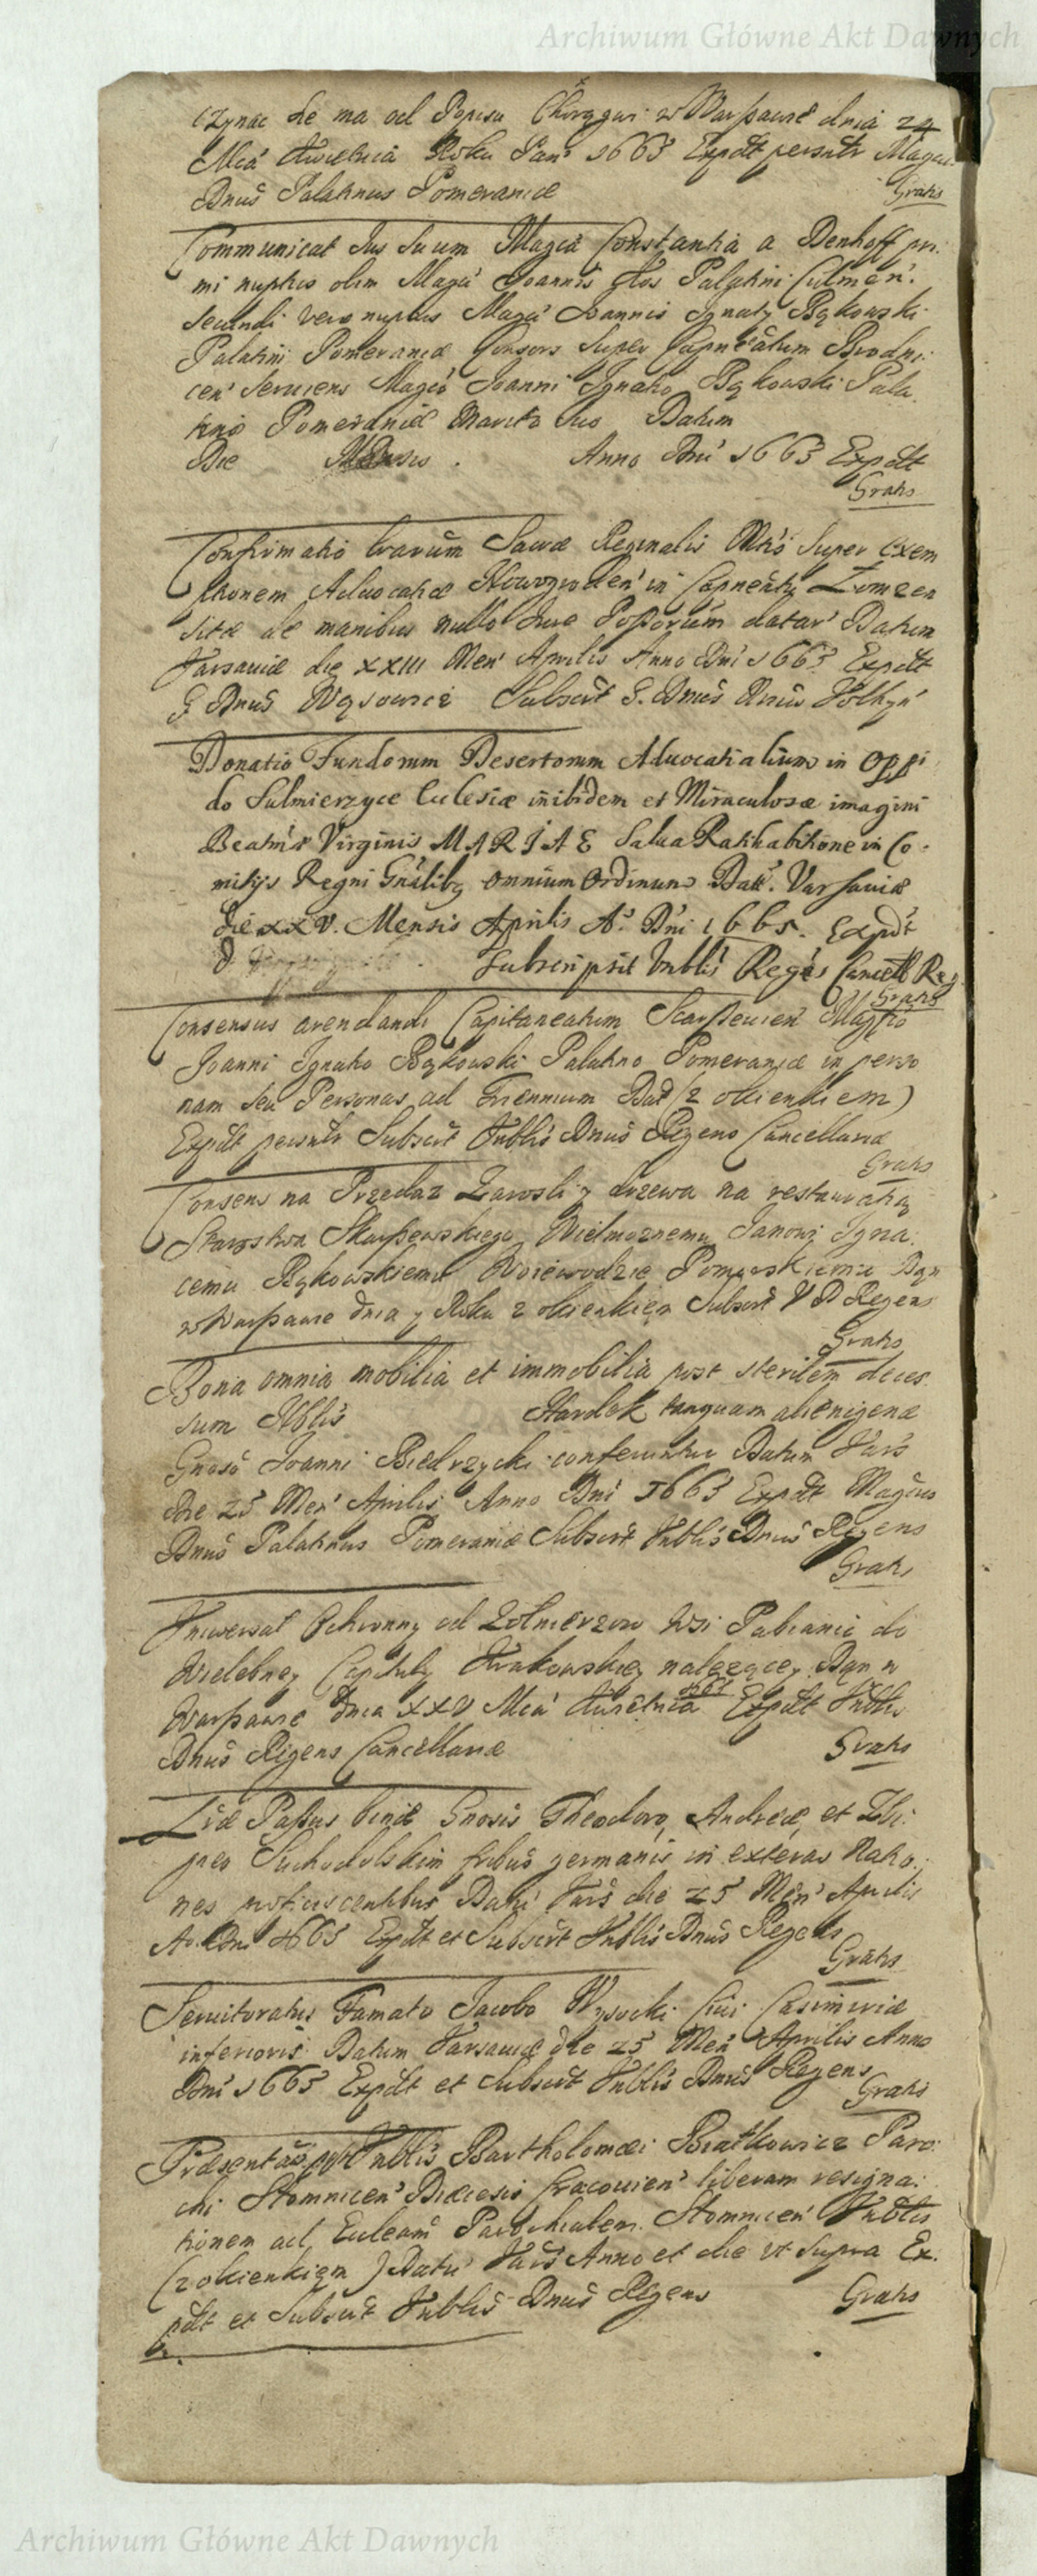 Archiwum Główne Akt Dawnych
czynac się ma od Popisu Chorągwi w Warszawie dnia 24
Mca Kwietnia Roku Pan 1663 Expdt personlr Magcus
Dnus Palatinus Pomeraniæ
Gratis
Communicat Jus Suum Magca Constantia a Denhoff pri
mi nuptus olim Magci Joannis Kos Palatini Culmen.
Secundi vero nuptus Magci Joannis Ignaty Bąkowski
Palatini Pomeraniæ Consors Super Capneatum Brodni
cen Serviens Magco Joanni Ignatio Bąkowski Pala
tino Pomeraniæ Marito Suo Datum
Die Mensis . Anno Dni 1663 Expdt
Gratis
Confirmatio lrarum Sacræ Reginalis Mtis Super Exem
ptionem Advocatiæ Nowogroden in Capneatu Lomzen
sitæ de manibus nullo Jure Possorum datar Datum
Varsaviæ die XXIII Men Aprilis Anno Dni 1663 Expdt
G Dnus Wąsowicz Subscrt G. Dnus Volhyn
Donatio Fundorum Desertorum Advocatialium in Oppi
do Sulmierzyce Eclesiæ inibidem et Miraculosæ imagini
Beatæ Virginis MARIAE Salva Ratihabitione in Co
mitijs Regni Gnalibq omnium Ordinum Dat. Varsaviæ
die XXV. Mensis Aprilis A. Dni 1665. Expdt
Subscripsit Vrblis Regens Cancell Reg
Gratis
Consensus arendandi Capitaneatum Scarszevien Magfco
Joanni Ignatio Bąkowski Palatino Pomeraniæ in perso
nam seu Personas ad Triennium Dat (z okienkiem)
Expdt personlr Subscrt Vrblis Dnus Regens Cancellariæ
Gratis
Consens na Przedaz Zarosli y drzewa na restauratią
Starostwa Skarszewskiego Wielmoznemu Janowi Igna
cemu Bąkowskiemu Woiewodzie Pomorskiemu Dan
w Warszawie dnia y Roku z okienkiem Subscrt V D Regens
Gratis
Bona omnia mobilia et immobilia post sterilem deces
sum Nblis Hardek tanquam alienigenæ
Gnoso Joanni Biedrzycki conferuntur Datum Vars
die 25 Men Aprilis Anno Dni 1663 Expdt Magcus
Dnus Palatinus Pomeraniæ Subscrt Vrblis Dnus Regens
Gratis
Uniwersał Ochronny od Zołnierzow Wsi Pabianic do
Wielebney Capituły Krakowskiey nalezącey Dan w
Warszawie dnia XXV Mca Kwietnia 1663 Expdt Vrblis
Dnus Regens Cancellariæ
Gratis
Lræ Passus binæ Gnosis Theodoro, Andreæ, et
Suchodolskim frbus germanis in exteras Natio
nes proficiscentibus Datu Vars die 25 Men Aprilis
Ao Dni 1663 Expdt et Subscrt Vrblis Dnus Regens
Gratis
Servitoratus Famato Jacobo Wysocki Civi Casimiriæ
inferioris Datum Varsaviæ die 25 Men Aprilis Anno
Dni 1663 Expdt et Subscrt Vrblis Dnus Regens
Gratis
Præsentao post Vrblis Bartholomæi Bratkowicz Paro
chi Stomnicen Diæcesis Cracovien liberam resigna
tionem ad Eccleam Parochialem Stomnicen Vrblis
(z okienkiem) Datu Vars Anno et die ut Supra Ex
pdt et Subscrt Vrblis Dnus Regens
Gratis
Archiwum Główne Akt Dawnych